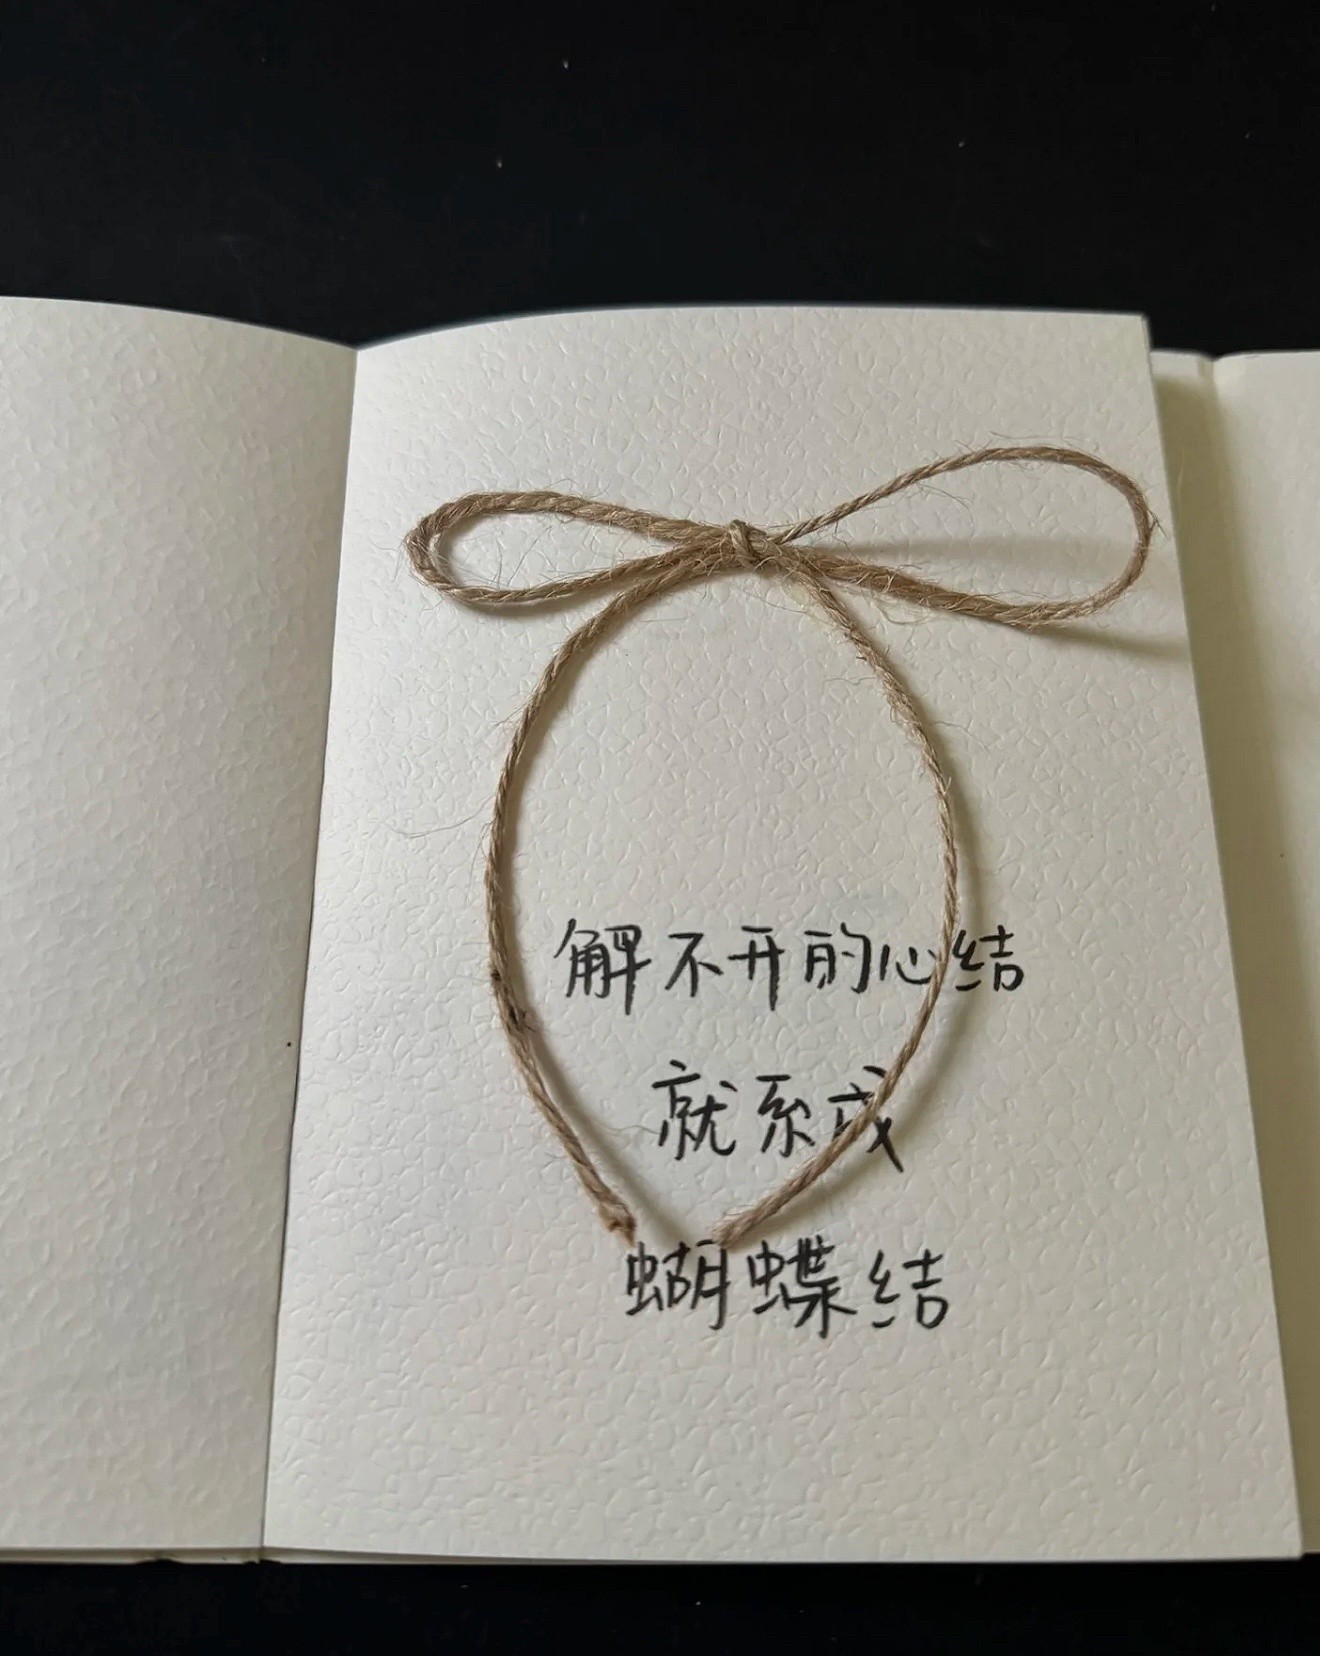 解不开的心结
就系成
蝴蝶结